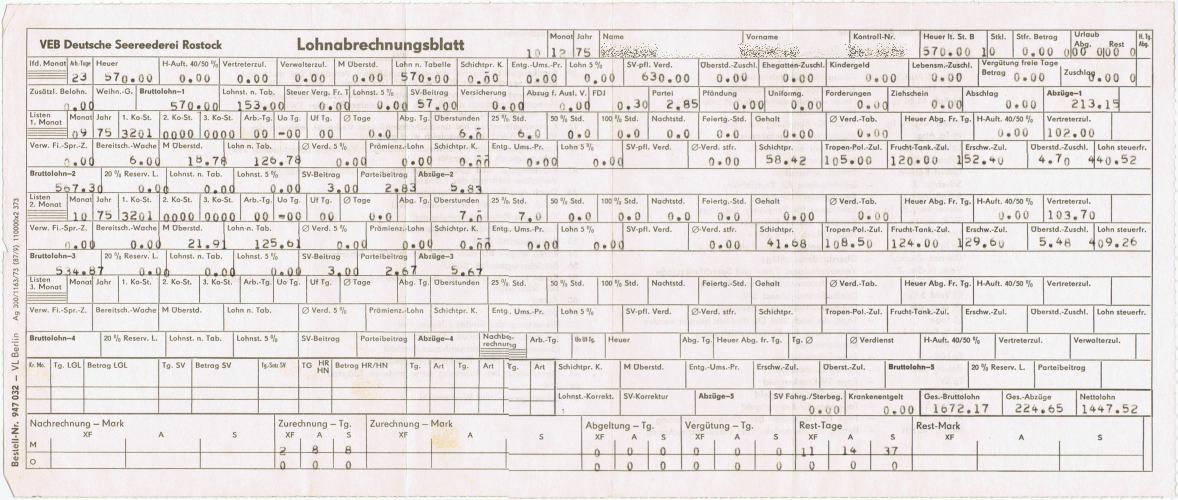 VEB Deutsche Seereederei Rostock Lohnabrechnungsblatt Monat Jahr Name Vorname Kontroll-Nr. Heuer lt. St. B Stkl. Stfr. Betrag Urlaub Abg. Rest
10 12 75 570.00 10 0.00 0.0 00 0
lfd. Monat Arb.-Tage Heuer H-Auft. 40/50 % Vertreterzul. Verwalterzul. M Überstd. Lohn n. Tabelle Schichtpr. K. Entg.-Ums.-Pr. Lohn 5 % SV-pfl. Verd. Überstd.-Zuschl. Ehegatten-Zuschl. Kindergeld Lebensm.-Zuschl. Vergütung freie Tage Betrag Zuschlag
23 570.00 0.00 0.00 0.00 0.00 570.00 0.00 0.00 0.00 630.00 0.00 0.00 0.00 0.00 0.00 0.00 0
Zusätzl. Belohn. Weihn.-G. Bruttolohn-1 Lohnst. n. Tab. Steuer Verg. Fr. T Lohnst. 5 % SV-Beitrag Versicherung Abzug f. Ausl. V. FDJ Partei Pfändung Uniformg. Forderungen Ziehschein Abschlag Abzüge-1
0.00 570.00 153.00 0.00 0.00 57.00 0.00 0.00 0.30 2.85 0.00 0.00 0.00 0.00 0.00 213.15
Listen 1. Monat Monat Jahr 1. Ko-St. 2. Ko-St. 3. Ko-St. Arb.-Tg. Uo Tg. Uf Tg. Ø Tage Abg. Tg. Überstunden 25 % Std. 50 % Std. 100 % Std. Nachtstd. Feiertg.-Std. Gehalt Ø Verd.-Tab. Heuer Abg. Fr. Tg. H-Auft. 40/50 % Vertreterzul.
09 75 3201 0000 0000 00 -00 00 0.0 6.0 6.0 0.0 0.0 0.0 0.0 0.00 0.00 0.00 102.00
Verw. Fi.-Spr.-Z. Bereitsch.-Wache M Überstd. Lohn n. Tab. Ø Verd. 5 % Prämienz.-Lohn Schichtpr. K. Entg. Ums.-Pr. Lohn 5 % SV-pfl. Verd. Ø-Verd. stfr. Schichtpr. Tropen-Pol.-Zul. Frucht-Tank.-Zul. Erschw.-Zul. Überstd.-Zuschl. Lohn steuerfr.
0.00 6.00 18.78 126.78 0.00 0.00 0.00 0.00 0.00 0.00 58.42 105.00 120.00 152.40 4.70 440.52
Bruttolohn-2 20 % Reserv. L. Lohnst. n. Tab. Lohnst. 5 % SV-Beitrag Parteibeitrag Abzüge-2
567.30 0.00 0.00 0.00 3.00 2.83 5.83
Listen 2. Monat Monat Jahr 1. Ko-St. 2. Ko-St. 3. Ko-St. Arb.-Tg. Uo Tg. Uf Tg. Ø Tage Abg. Tg. Überstunden 25 % Std. 50 % Std. 100 % Std. Nachtstd. Feiertg.-Std. Gehalt Ø Verd.-Tab. Heuer Abg. Fr. Tg. H-Auft. 40/50 % Vertreterzul.
10 75 3201 0000 0000 00 -00 00 0.0 7.0 7.0 0.0 0.0 0.0 0.0 0.00 0.00 0.00 103.70
Verw. Fi.-Spr.-Z. Bereitsch.-Wache M Überstd. Lohn n. Tab. Ø Verd. 5 % Prämienz.-Lohn Schichtpr. K. Entg. Ums.-Pr. Lohn 5 % SV-pfl. Verd. Ø-Verd. stfr. Schichtpr. Tropen-Pol.-Zul. Frucht-Tank.-Zul. Erschw.-Zul. Überstd.-Zuschl. Lohn steuerfr.
0.00 0.00 21.91 125.61 0.00 0.00 0.00 0.00 0.00 0.00 41.68 108.50 124.00 129.60 5.48 409.26
Bruttolohn-3 20 % Reserv. L. Lohnst. n. Tab. Lohnst. 5 % SV-Beitrag Parteibeitrag Abzüge-3
534.87 0.00 0.00 0.00 3.00 2.67 5.67
Listen 3. Monat Monat Jahr 1. Ko-St. 2. Ko-St. 3. Ko-St. Arb.-Tg. Uo Tg. Uf Tg. Ø Tage Abg. Tg. Überstunden 25 % Std. 50 % Std. 100 % Std. Nachtstd. Feiertg.-Std. Gehalt Ø Verd.-Tab. Heuer Abg. Fr. Tg. H-Auft. 40/50 % Vertreterzul.
Verw. Fi.-Spr.-Z. Bereitsch.-Wache M Überstd. Lohn n. Tab. Ø Verd. 5 % Prämienz.-Lohn Schichtpr. K. Entg. Ums.-Pr. Lohn 5 % SV-pfl. Verd. Ø-Verd. stfr. Schichtpr. Tropen-Pol.-Zul. Frucht-Tank.-Zul. Erschw.-Zul. Überstd.-Zuschl. Lohn steuerfr.
Bruttolohn-4 20 % Reserv. L. Lohnst. n. Tab. Lohnst. 5 % SV-Beitrag Parteibeitrag Abzüge-4 Nachbe-rechnung Arb.-Tg. Uo Uf-Tg. Heuer Abg. Tg. Heuer Abg. fr. Tg. Tg. Ø Ø Verdienst H-Auft. 40/50 % Vertreterzul. Verwalterzul.
Kr. Mo. Tg. LGL Betrag LGL Tg. SV Betrag SV Tg.-Satz SV TG HR HN Betrag HR/HN Tg. Art Tg. Art Tg. Art Schichtpr. K. M Überstd. Entg.-Ums.-Pr. Erschw.-Zul. Überst.-Zul. Bruttolohn-5 20 % Reserv. L. Parteibeitrag
Lohnst.-Korrekt. SV-Korrektur Abzüge-5 SV Fahrg./Sterbeg. Krankenentgelt Ges.-Bruttolohn Ges.-Abzüge Nettolohn
0.00 0.00 1672.17 224.65 1447.52
Nachrechnung – Mark Zurechnung – Tg. Zurechnung – Mark Abgeltung – Tg. Vergütung – Tg. Rest-Tage Rest-Mark
XF A S XF A S XF A S XF A S XF A S XF A S XF A S
M 2 8 8 0 0 0 0 0 0 11 14 37
O 0 0 0 0 0 0 0 0 0 0 0 0
Bestell-Nr. 947 032 – VL Berlin Ag 300/1163/73 (87/9) 110000x2 373